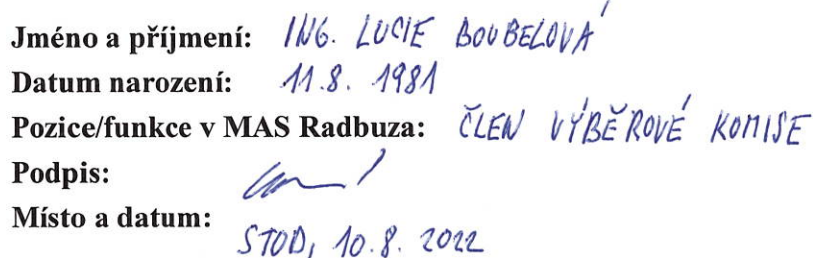 Jméno a příjmení: ING. LUCIE BOUBELOVÁ
Datum narození: 11.8. 1981
Pozice/funkce v MAS Radbuza: ČLEN VÝBĚROVÉ KOMISE
Podpis:
Místo a datum: STOD, 10.8. 2022